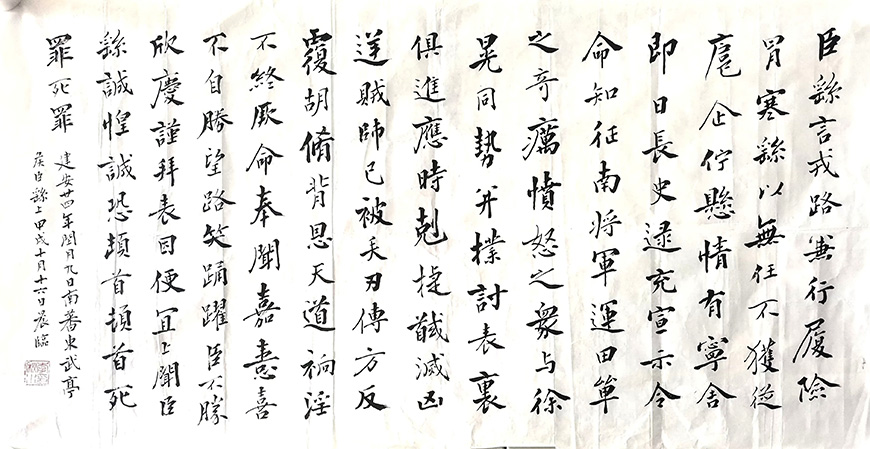 臣繇言戎路兼行履險
冒寒繇以無任不獲從
扈企佇懸情有寧舍
即日長史逯充宣示令
命知征南将軍運田單
之奇癘憤怒之衆与徐
晃同勢并撲討表裏
俱進應時剋捷馘滅凶
逆賊帥已被夭刃傳方反
覆胡脩背恩天道禍淫
不終厥命奉聞嘉憙喜
不自勝望路笑踊躍臣不勝
欣慶謹拜表因便冝上聞臣
繇誠惶誠恐頓首頓首死
罪死罪
建安廿四年閏月九日南蕃東武亭
侯臣繇上甲戌十月十六日晨臨